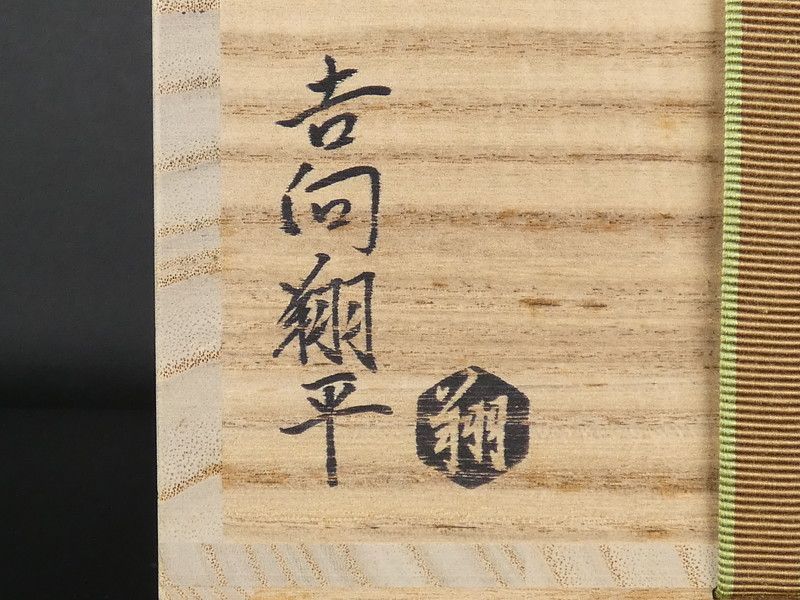 吉向翔平
翔